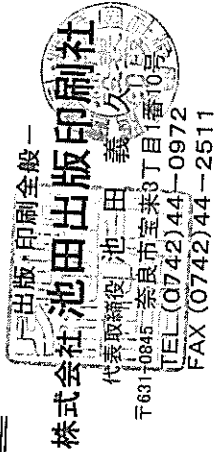 —出版・印刷全般—
株式会社 池田出版印刷社
代表取締役 池田 義久
〒631-0845 奈良市宝来3丁目1番10号
TEL (0742)44-0972
FAX (0742)44-2511